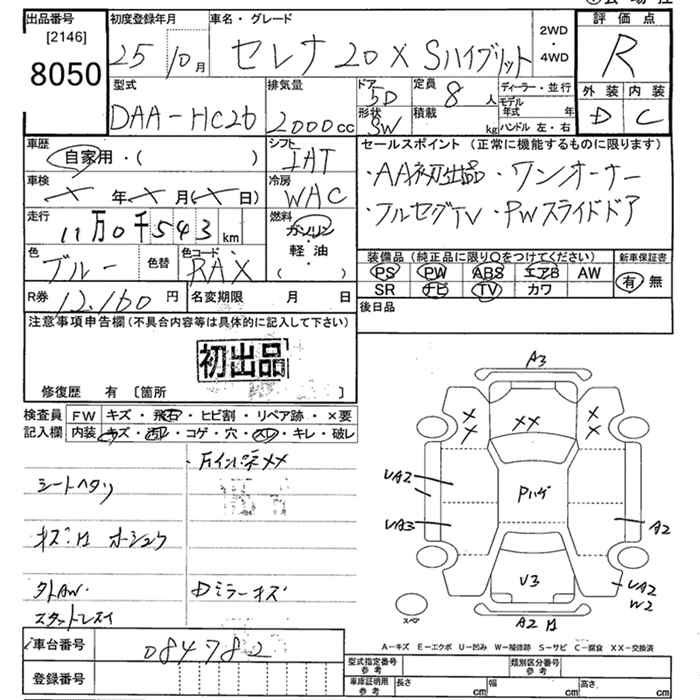 出品番号
[2146]
8050
初度登録年月
25 10月
車名・グレード
セレナ 20X Sハイブリット
2WD
・
4WD
評価点
R
外装 内装
D C
型式
DAA-HC26
排気量
2000cc
ドア
5D
形状
SW
定員
8 人
積載
kg
ディーラー・並行
モデル
年式 年
ハンドル 左・右
車歴
自家用・( )
シフト
IAT
セールスポイント (正常に機能するものに限ります)
・AA初出品 ・ワンオーナー
・フルセグTV ・PWスライドドア
車検
年 月 ( 日)
冷房
WAC
走行
11万0千543 km
燃料
ガソリン
・
軽・油
( )
色
ブルー
色替
色コード
RAX
装備品 (純正品に限り○をつけてください)
PS PW ABS エアB AW
SR ナビ TV カワ
新車保証書
有 無
R券 12,160 円
名変期限 月 日
後日品
注意事項申告欄(不具合内容等は具体的に記入して下さい)
初出品
修復歴 有 [箇所 ]
検査員
記入欄
FW キズ・飛石・ヒビ割・リペア跡・×要
内装 キズ・汚レ・コゲ・穴・スレ・キレ・破レ
シートヘタリ
外AW.
スタットレスイ
Dミラーキズ
A3
××
×
×
×
×
UA2
UA3
Pハゲ
A2
U3
UA2
W2
A2
スペア
A-キズ E-エクボ U-凹み W-補修跡 S-サビ C-腐食 XX-交換済
車台番号
084782
登録番号
型式指定番号
参考
類別区分番号
参考
車庫証明用
参考
長さ cm
幅 cm
高さ cm